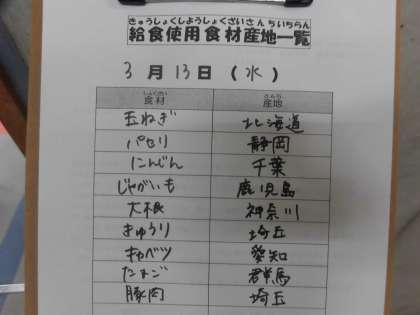 きゅうしょくしようしょくざいさんちいちらん
給食使用食材産地一覧
3月13日(水)
しょくざい さんち
食材 産地
玉ねぎ 北海道
パセリ 静岡
にんじん 千葉
じゃがいも 鹿児島
大根 神奈川
きゅうり 埼玉
キャベツ 愛知
たまご 群馬
豚肉 埼玉